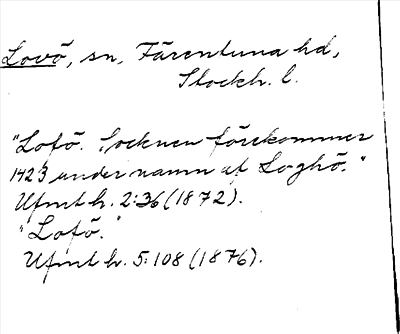 Lovö, sn, Färentuna hd,
Stockh. l.
"Lofö. Socknen förekommer
1423 under namn af Loghö."
Ufmt h. 2:36 (1872).
"Lofö."
Ufmt h. 5:108 (1876).